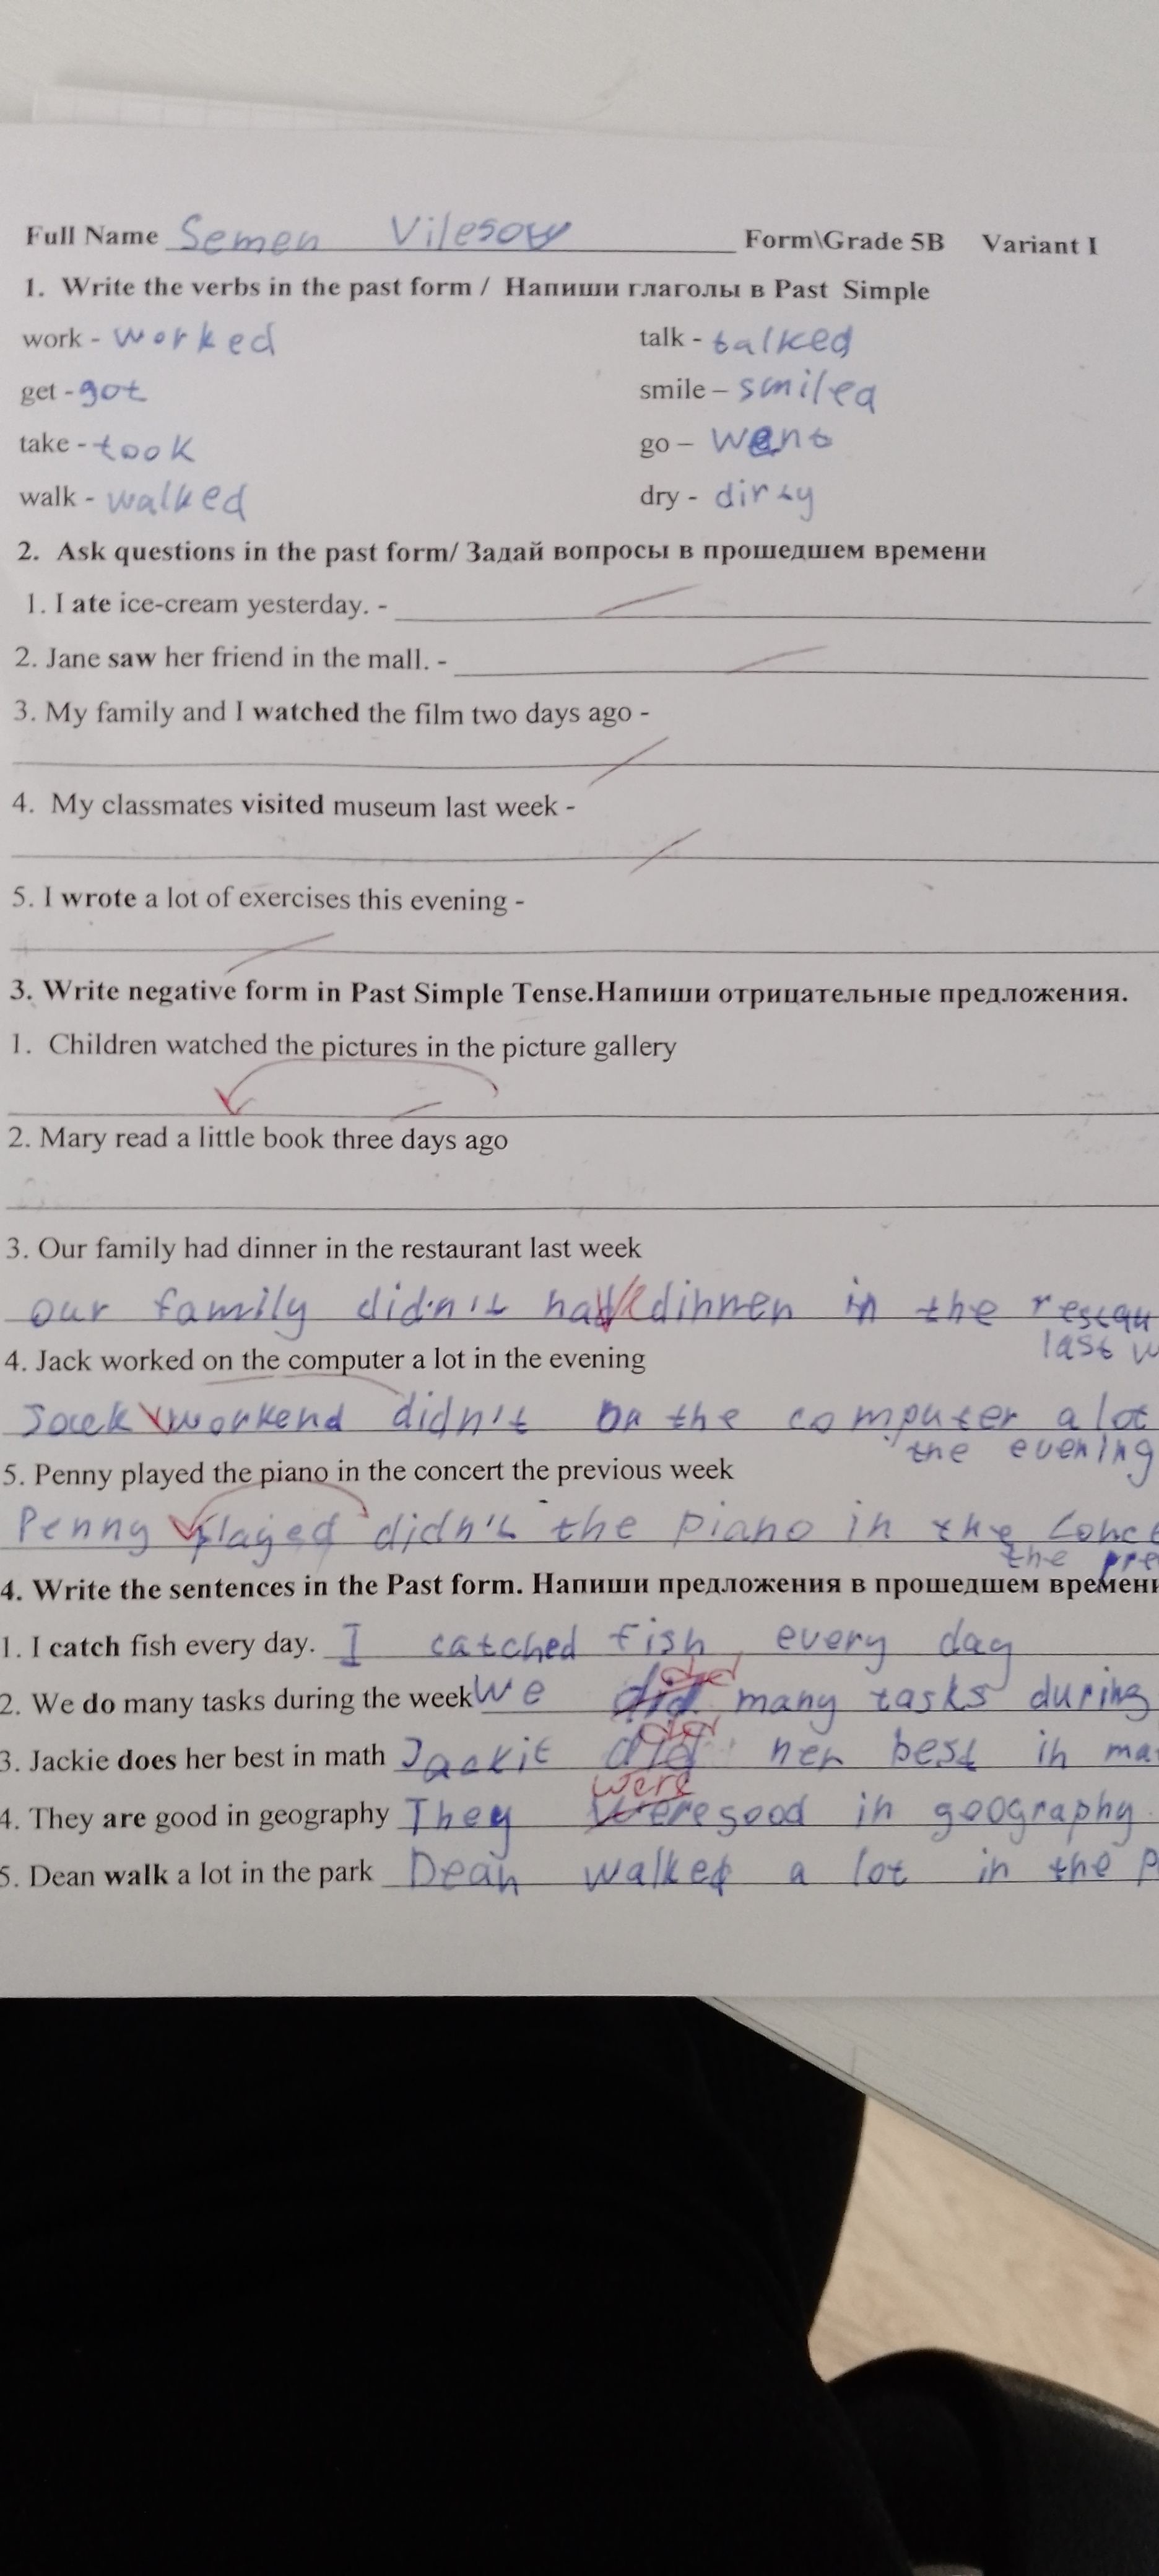 Full Name Semen Vilesow Form\Grade 5B Variant I
1. Write the verbs in the past form / Напиши глаголы в Past Simple
work - worked talk - talked
get - got smile – smiled
take - took go – went
walk - walked dry - dirty
2. Ask questions in the past form/ Задай вопросы в прошедшем времени
1. I ate ice-cream yesterday. -
2. Jane saw her friend in the mall. -
3. My family and I watched the film two days ago -
4. My classmates visited museum last week -
5. I wrote a lot of exercises this evening -
3. Write negative form in Past Simple Tense.Напиши отрицательные предложения.
1. Children watched the pictures in the picture gallery
2. Mary read a little book three days ago
3. Our family had dinner in the restaurant last week
our family didn't dinnen in the restau
last w
4. Jack worked on the computer a lot in the evening
Jack workend didn't on the computer a lot
the evening
5. Penny played the piano in the concert the previous week
Penny played didn't the piano in the conce
the pre
4. Write the sentences in the Past form. Напиши предложения в прошедшем времени
1. I catch fish every day. I catched fish every day
2. We do many tasks during the week We did many tasks during
did
3. Jackie does her best in math Jackie did her best in ma
were
4. They are good in geography They were good in geography
5. Dean walk a lot in the park Dean walked a lot in the p